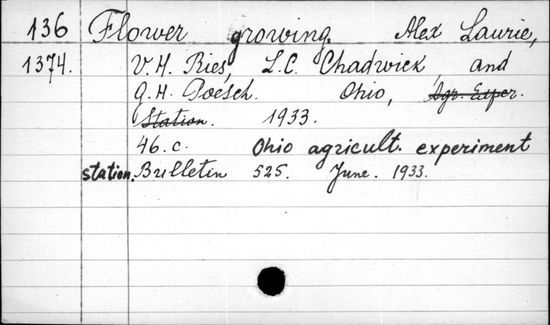 136 Flower growing. Alex Laurie,
1374. V. H. Ries, L. C. Chadwick, and
G. H. Poesch. Ohio, Agr. Exper.
Station. 1933.
46. c. Ohio agricult. experiment
station. Bulletin 525. June. 1933.